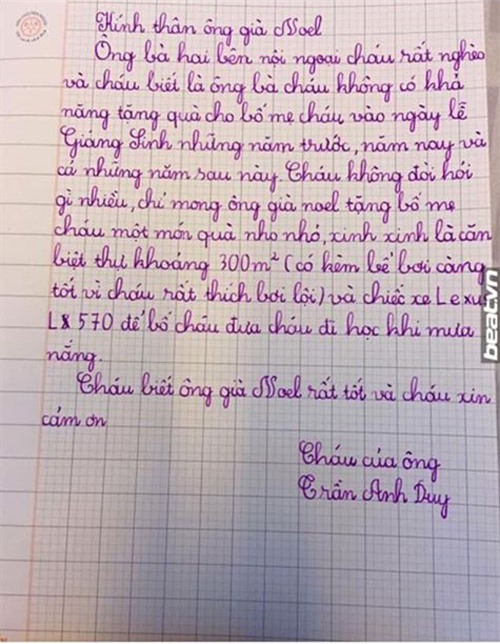 Kính thân ông già Noel
Ông bà hai bên nội ngoại cháu rất nghèo
và cháu biết là ông bà cháu không có khả
năng tặng quà cho bố mẹ cháu vào ngày lễ
Giáng Sinh những năm trước, năm nay và
cả những năm sau này. Cháu không đòi hỏi
gì nhiều, chỉ mong ông già noel tặng bố mẹ
cháu một món quà nho nhỏ, xinh xinh là căn
biệt thự khoảng 300m² (có kèm bể bơi càng
tốt vì cháu rất thích bơi lội) và chiếc xe Lexus
LX 570 để bố cháu đưa cháu đi học khi mưa
nắng.
Cháu biết ông già Noel rất tốt và cháu xin
cảm ơn
Cháu của ông
Trần Anh Duy
beatvn